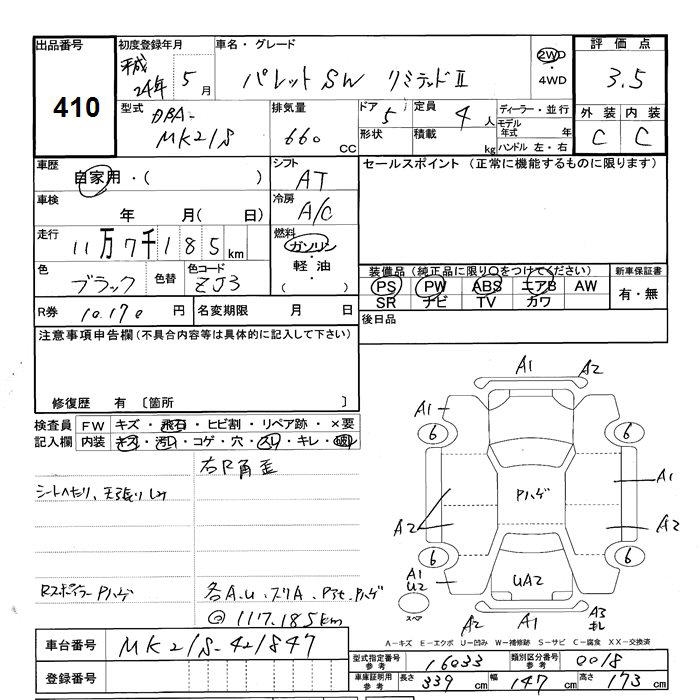 出品番号
410
初度登録年月
平成
24年 5月
車名・グレード
パレットSW リミテッドⅡ
2WD
・4WD
評価点
3.5
型式
DBA-
MK21S
排気量
660
CC
ドア
5
形状
定員
4人
積載
kg
ディーラー・並行
モデル年式 年
ハンドル 左・右
外装 内装
C C
車歴
自家用・( )
シフト
AT
セールスポイント (正常に機能するものに限ります)
車検
年 月( 日)
冷房
A/C
走行
11万7千185km
燃料
ガソリン
・軽油・
( )
色
ブラック
色替
色コード
ZJ3
装備品 (純正品に限り○をつけてください)
PS PW ABS エアB AW
SR ナビ TV カワ
新車保証書
有・無
R券
10,170 円
名変期限 月 日
後日品
注意事項申告欄(不具合内容等は具体的に記入して下さい)
修復歴 有 〔箇所 〕
検査員
記入欄
FW キズ・飛石・ヒビ割・リペア跡・×要
内装 キズ・汚レ・コゲ・穴・スレ・キレ・破レ
右R角歪
シートヘタリ、天張りしみ
RスポイラーPハゲ
各A.U.スリA.Pアセ.Pハゲ
@117,185km
A1 A2
A1
6 6
Pハゲ
A1
A2
A2
6 6
A1
U2
UA2
スペア
A2 A1 A3
キレ
A-キズ E-エクボ U-凹み W-補修跡 S-サビ C-腐食 XX-交換済
車台番号
MK21S-421847
登録番号
型式指定番号 参考
16033
類別区分番号 参考
0018
車庫証明用 参考
長さ 339cm 幅 147cm 高さ 173cm